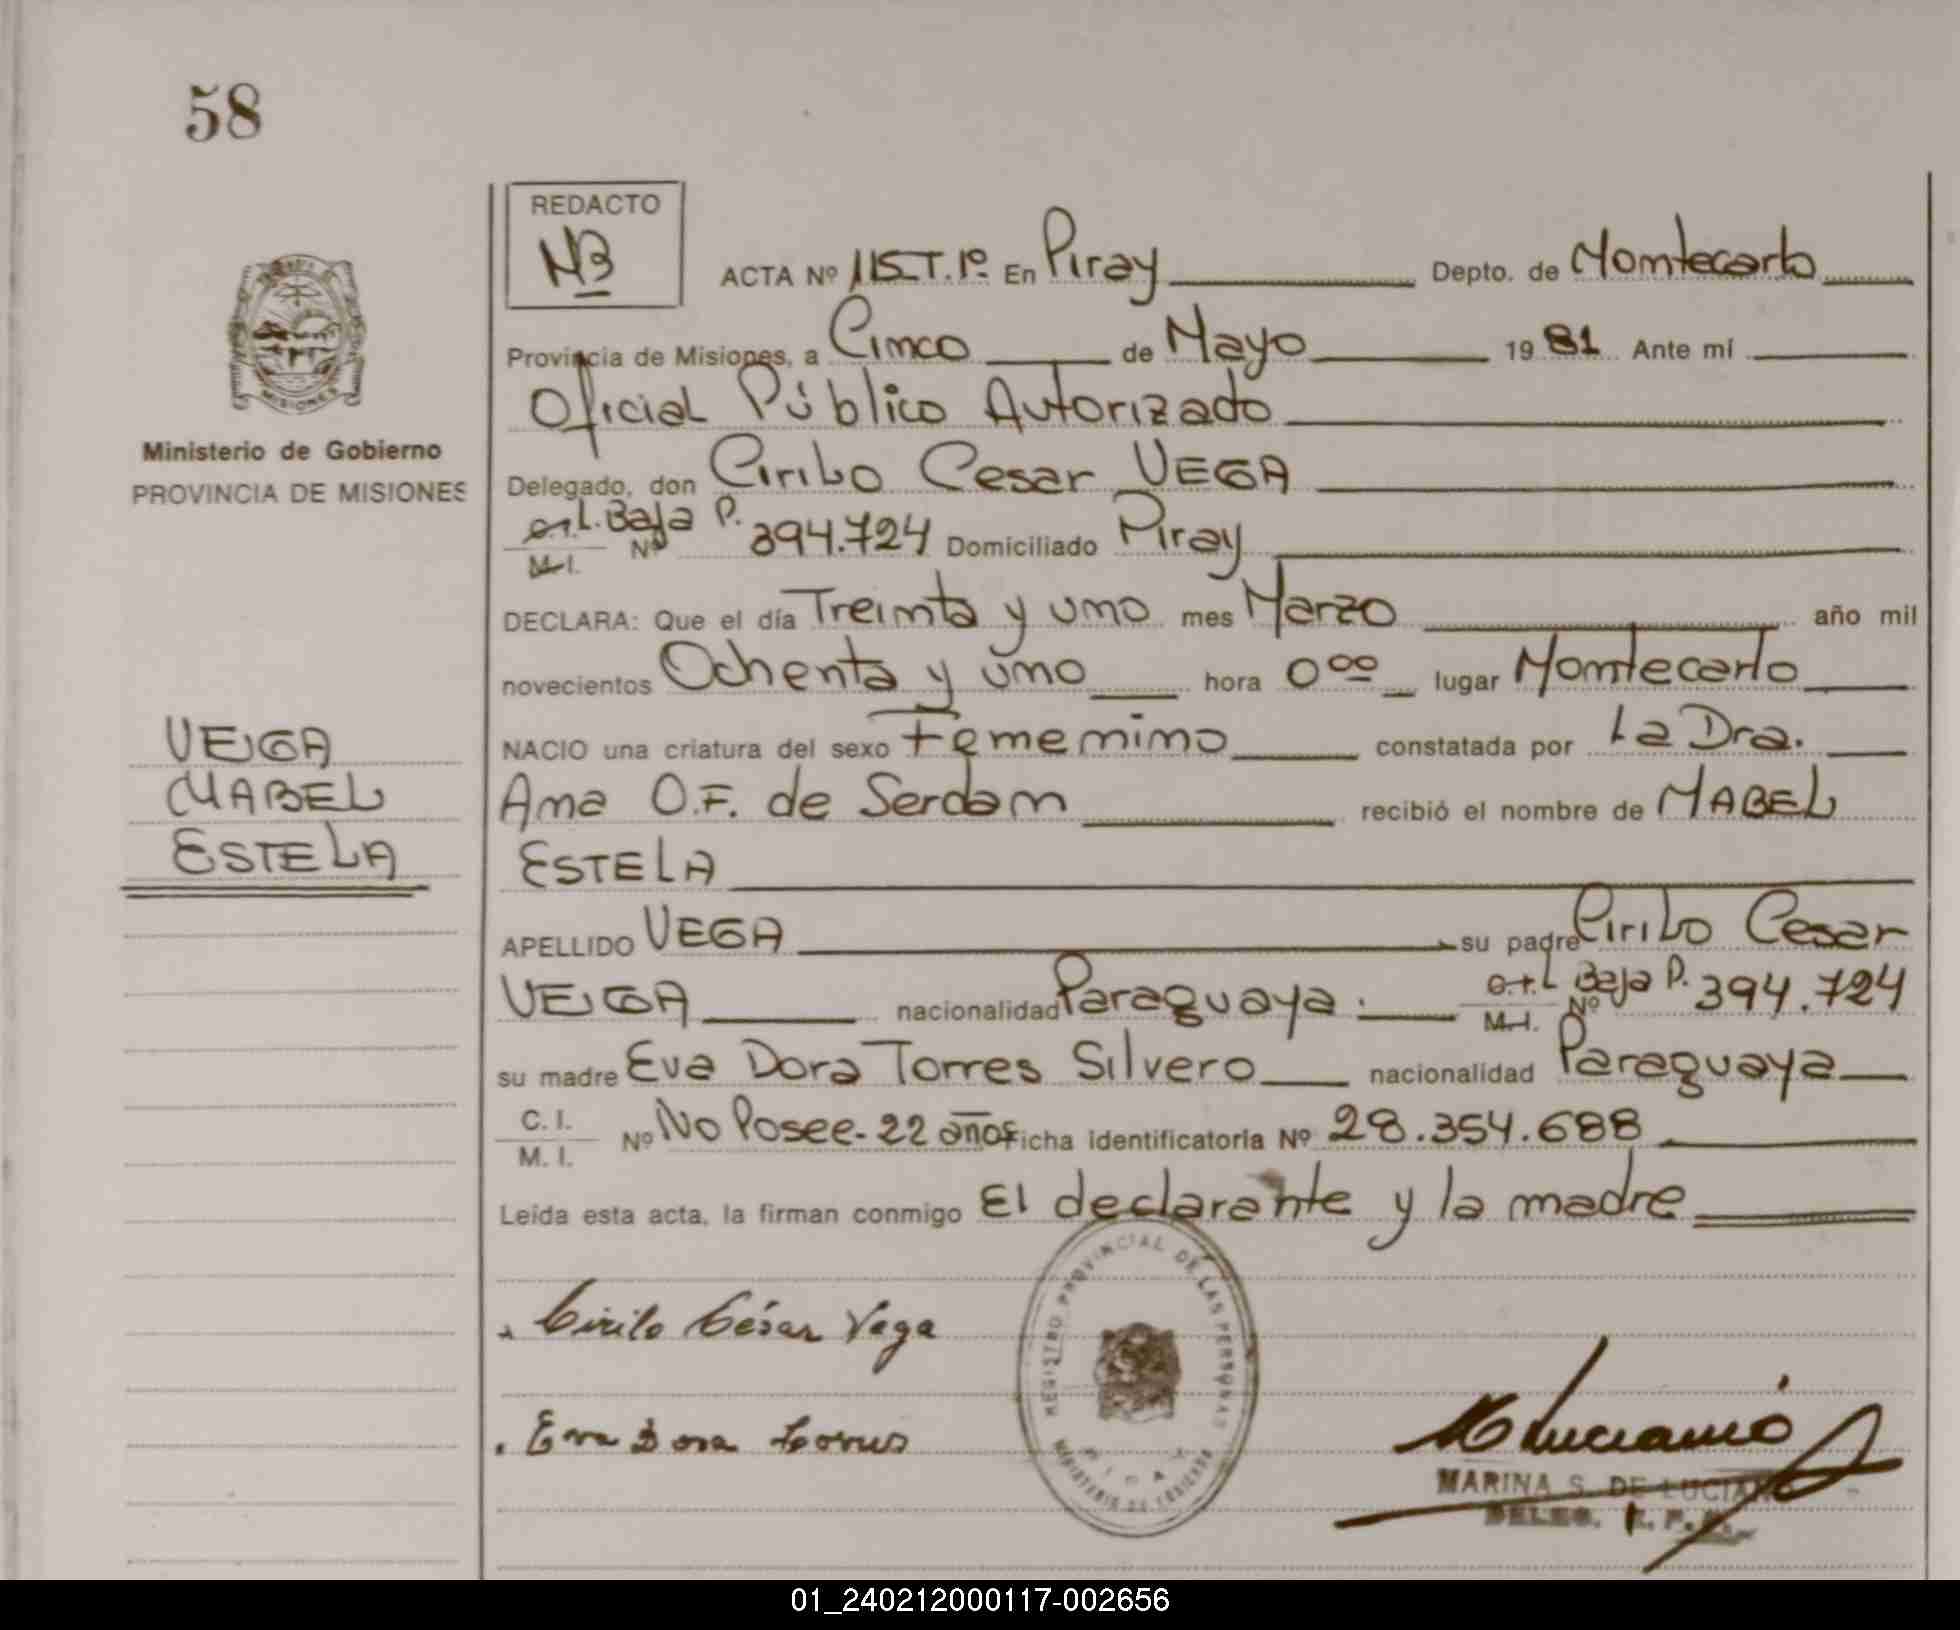 58
REDACTO
NB
ACTA Nº 115 T.1º En Piray Depto. de Montecarlo
Provincia de Misiones, a Cinco de Mayo 1981 Ante mí
Oficial Público Autorizado
Delegado, don Cirilo Cesar VEGA
C.I. L. Baja P.
M.I. Nº 394.724 Domiciliado Piray
DECLARA: Que el día Treinta y uno mes Marzo año mil
novecientos Ochenta y uno hora 0 00 lugar Montecarlo
NACIO una criatura del sexo Femenino constatada por La Dra.
Ana O.F. de Serdan recibió el nombre de MABEL
ESTELA
APELLIDO VEGA su padre Cirilo Cesar
VEGA nacionalidad Paraguaya. C.I. L Baja P. M.I. Nº 394.724
su madre Eva Dora Torres Silvero nacionalidad Paraguaya
C. I.
M. I. Nº No Posee- 22 años ficha identificatoria Nº 28.354.688
Leída esta acta, la firman conmigo El declarante y la madre
MISIONES
Ministerio de Gobierno
PROVINCIA DE MISIONES
VEGA
MABEL
ESTELA
Cirilo César Vega
Eva Dora Torres
REGISTRO PROVINCIAL DE LAS PERSONAS
PIRAY
MINISTERIO DE GOBIERNO
M Luciano
MARINA S. DE LUCIANO
DELEG. R. P. P.
01_240212000117-002656